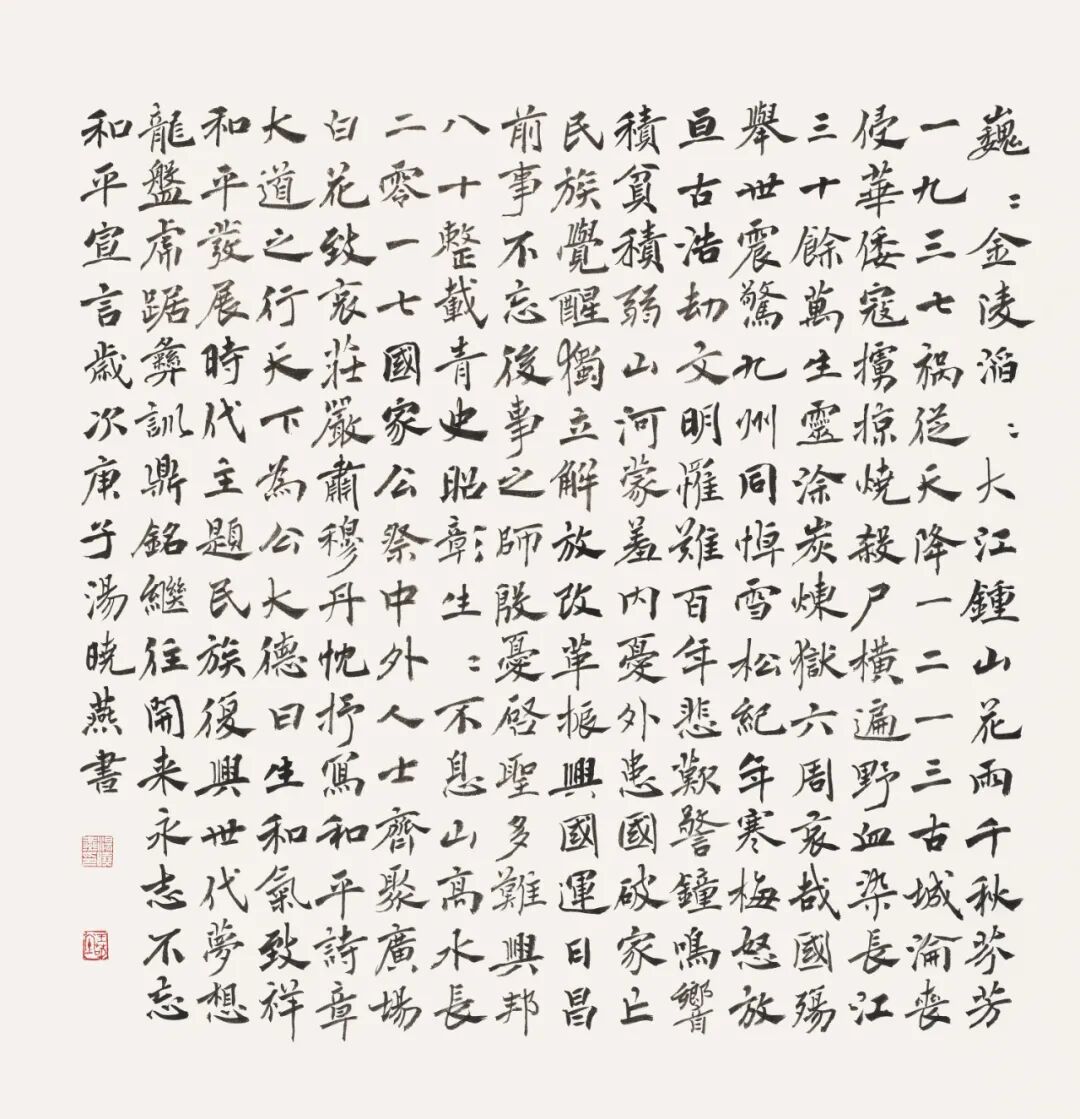 巍〻金陵滔〻大江鍾山花雨千秋芬芳
一九三七祸從天降一二一三古城淪喪
侵華倭寇擄掠燒殺尸横遍野血染長江
三十餘萬生靈涂炭煉獄六周哀哉國殤
舉世震驚九州同悼雪松紀年寒梅怒放
亘古浩劫文明罹難百年悲歎警鐘鳴響
積貧積弱山河蒙羞内憂外患國破家亡
民族覺醒獨立解放改革振興國運日昌
前事不忘後事之師殷憂啓聖多難興邦
八十整載青史昭彰生〻不息山高水長
二零一七國家公祭中外人士齊聚廣場
白花致哀莊嚴肅穆丹忱抒寫和平詩章
大道之行天下為公大德曰生和氣致祥
和平發展時代主題民族復興世代夢想
龍盤虎踞彝訓鼎銘繼往開来永志不忘
和平宣言歲次庚子湯曉燕書